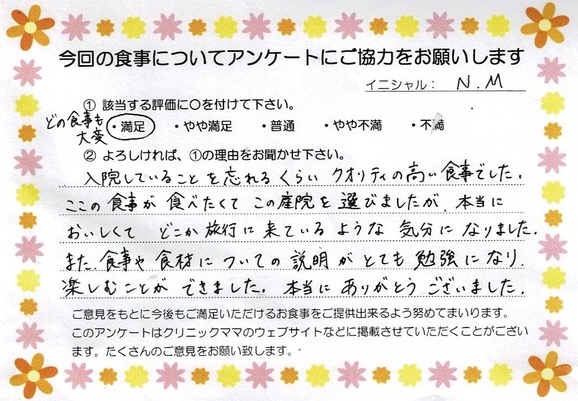 今回の食事についてアンケートにご協力をお願いします
イニシャル： N.M
① 該当する評価に○を付けて下さい。
どの食事も
大変
・満足 ・やや満足 ・普通 ・やや不満 ・不満
② よろしければ、①の理由をお聞かせ下さい。
入院していることを忘れるくらい クオリティの高い食事でした。
ここの食事が 食べたくて この産院を 選びましたが、本当に
おいしくて どこか旅行に来ているような 気分に なりました。
また、食事や食材に ついての説明が とても 勉強に なり、
楽しむことが できました。本当に ありがとう ございました。
ご意見をもとに今後もご満足いただけるお食事をご提供出来るよう努めてまいります。
このアンケートはクリニックママのウェブサイトなどに掲載させていただくことがござい
ます。たくさんのご意見をお願い致します。